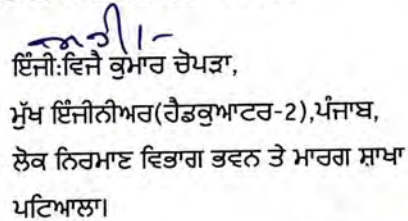 ਸਹੀ/-
ਇੰਜੀ:ਵਿਜੈ ਕੁਮਾਰ ਚੋਪੜਾ,
ਮੁੱਖ ਇੰਜੀਨੀਅਰ(ਹੈਡਕੁਆਟਰ-2),ਪੰਜਾਬ,
ਲੋਕ ਨਿਰਮਾਣ ਵਿਭਾਗ ਭਵਨ ਤੇ ਮਾਰਗ ਸ਼ਾਖਾ
ਪਟਿਆਲਾ।